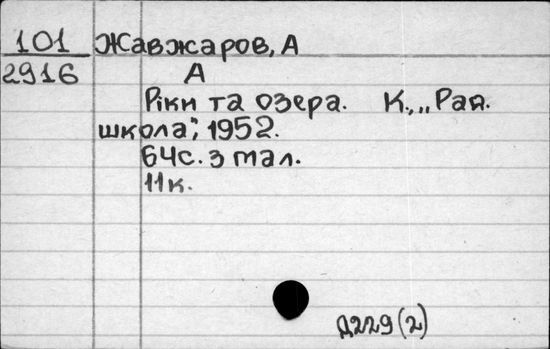 101 Жавжаров, А
2916 А
Ріки та озера. К., „Рад.
школа", 1952.
64с. з мал.
11к.
Д229(2)